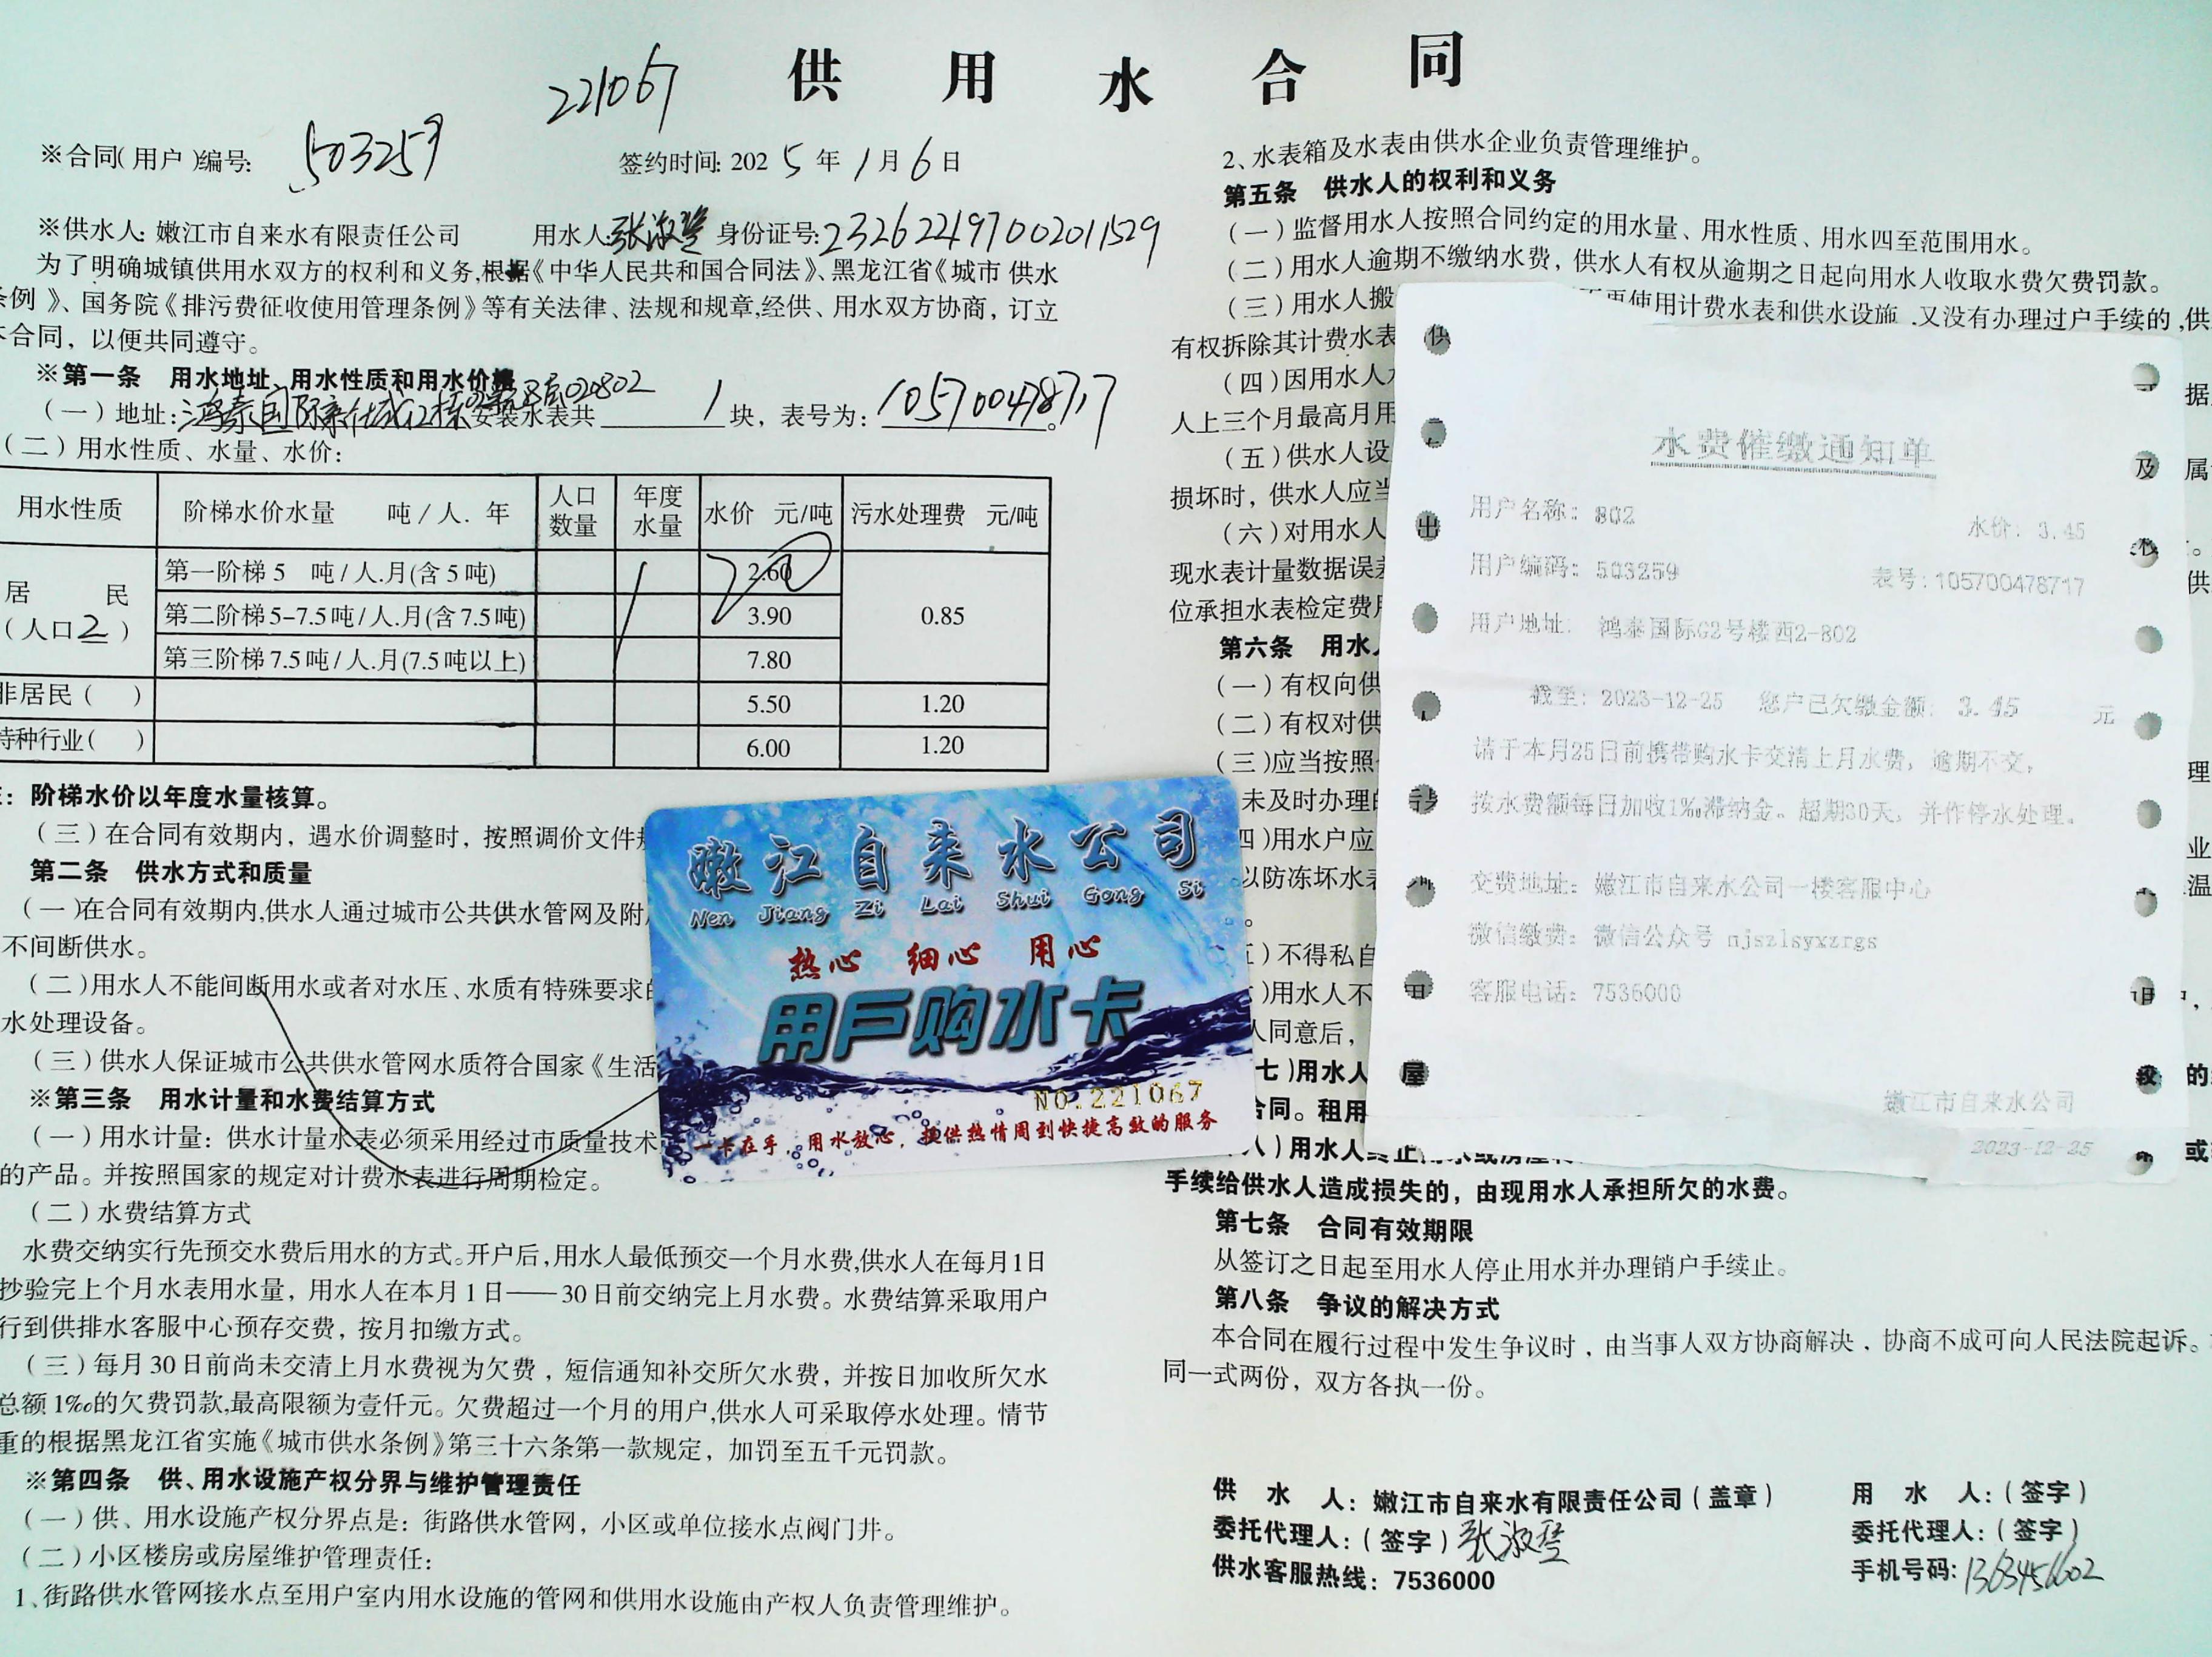 供用水合同
221067
※合同(用户)编号: 503259
签约时间: 2025年1月6日
※供水人: 嫩江市自来水有限责任公司 用水人: 张淑 身份证号: 232622197002011529
为了明确城镇供用水双方的权利和义务,根据《中华人民共和国合同法》、黑龙江省《城市 供水
条例》、国务院《排污费征收使用管理条例》等有关法律、法规和规章,经供、用水双方协商，订立
本合同，以便共同遵守。
※第一条 用水地址、用水性质和用水价格
(一)地址: 鸿泰国际 020802 安装水表共 1 块，表号为: 105700478717。
(二)用水性质、水量、水价:
用水性质 阶梯水价水量 吨/人.年 人口数量 年度水量 水价 元/吨 污水处理费 元/吨
居民(人口2) 第一阶梯5 吨/人.月(含5吨) 2.60 0.85
第二阶梯5-7.5吨/人.月(含7.5吨) 3.90
第三阶梯7.5吨/人.月(7.5吨以上) 7.80
非居民( ) 5.50 1.20
特种行业( ) 6.00 1.20
: 阶梯水价以年度水量核算。
(三)在合同有效期内，遇水价调整时，按照调价文件
第二条 供水方式和质量
(一)在合同有效期内,供水人通过城市公共供水管网及附
不间断供水。
(二)用水人不能间断用水或者对水压、水质有特殊要求的
水处理设备。
(三)供水人保证城市公共供水管网水质符合国家《生活
※第三条 用水计量和水费结算方式
(一)用水计量: 供水计量水表必须采用经过市质量技术
的产品。并按照国家的规定对计费水表进行周期检定。
(二)水费结算方式
水费交纳实行先预交水费后用水的方式。开户后,用水人最低预交一个月水费,供水人在每月1日
抄验完上个月水表用水量，用水人在本月1日——30日前交纳完上月水费。水费结算采取用户
行到供排水客服中心预存交费，按月扣缴方式。
(三)每月30日前尚未交清上月水费视为欠费，短信通知补交所欠水费，并按日加收所欠水
总额1‰的欠费罚款,最高限额为壹仟元。欠费超过一个月的用户,供水人可采取停水处理。情节
重的根据黑龙江省实施《城市供水条例》第三十六条第一款规定，加罚至五千元罚款。
※第四条 供、用水设施产权分界与维护管理责任
(一)供、用水设施产权分界点是: 街路供水管网，小区或单位接水点阀门井。
(二)小区楼房或房屋维护管理责任:
1、街路供水管网接水点至用户室内用水设施的管网和供用水设施由产权人负责管理维护。
2、水表箱及水表由供水企业负责管理维护。
第五条 供水人的权利和义务
(一)监督用水人按照合同约定的用水量、用水性质、用水四至范围用水。
(二)用水人逾期不缴纳水费，供水人有权从逾期之日起向用水人收取水费欠费罚款。
(三)用水人搬 不再使用计费水表和供水设施，又没有办理过户手续的,供
有权拆除其计费水表
(四)因用水人 据
人上三个月最高月用
(五)供水人设 属
损坏时，供水人应当
(六)对用水人 。
现水表计量数据误差 供
位承担水表检定费用
第六条 用水人
(一)有权向供
(二)有权对供
(三)应当按照 理
未及时办理的
四)用水户应 业
以防冻坏水表 温
。
)不得私自
)用水人不
人同意后，
七)用水人 的
合同。租用
八)用水人终止用水或房屋 或
手续给供水人造成损失的，由现用水人承担所欠的水费。
第七条 合同有效期限
从签订之日起至用水人停止用水并办理销户手续止。
第八条 争议的解决方式
本合同在履行过程中发生争议时，由当事人双方协商解决，协商不成可向人民法院起诉。
同一式两份，双方各执一份。
供水人: 嫩江市自来水有限责任公司(盖章) 用水人:(签字)
委托代理人:(签字) 张淑 委托代理人:(签字)
供水客服热线: 7536000 手机号码:
水费催缴通知单
用户名称: 802 水价: 3.45
用户编码: 503259 表号: 105700478717
用户地址: 鸿泰国际G2号楼西2-802
截至: 2023-12-25 您户已欠缴金额: 3.45 元
请于本月25日前携带购水卡交清上月水费，逾期不交，
按水费额每日加收1‰滞纳金。超期30天，并作停水处理。
交费地址: 嫩江市自来水公司一楼客服中心
微信缴费: 微信公众号 njszlsyxzrgs
客服电话: 7536000
嫩江市自来水公司
2023-12-25
嫩江自来水公司
Nen Jiang Zi Lai Shui Gong Si
热心 细心 用心
用户购水卡
NO.221067
一卡在手，用水放心，提供热情周到快捷高效的服务